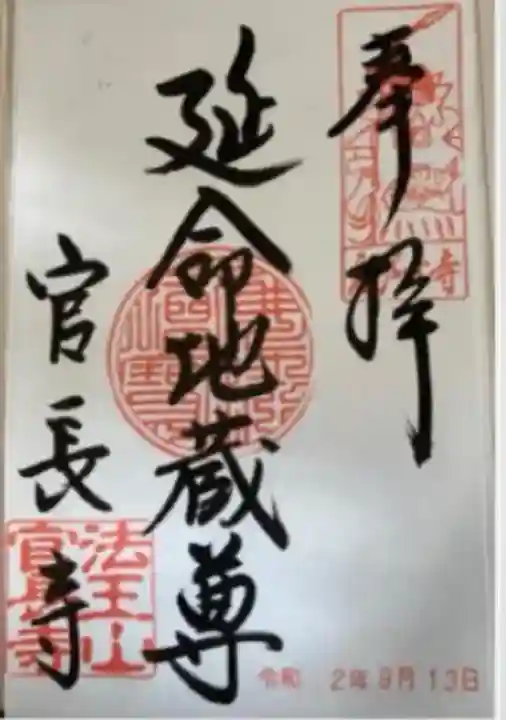 奉拝
延命地蔵尊
官長寺
法王山
官長寺
令和 2年9月13日